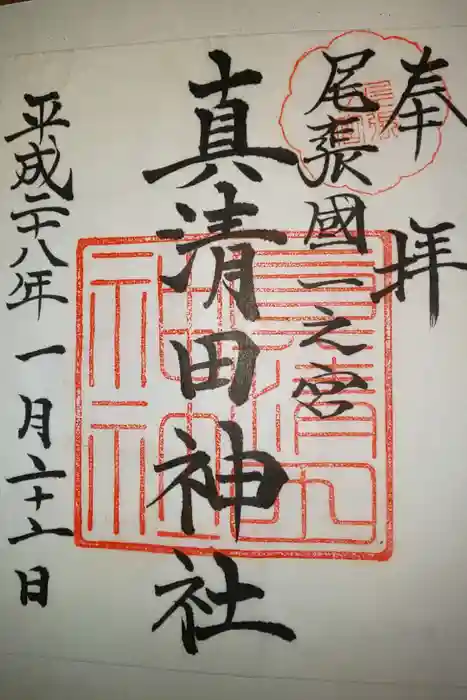 奉拝
尾張國一之宮
真清田神社
平成二十八年一月二十一日